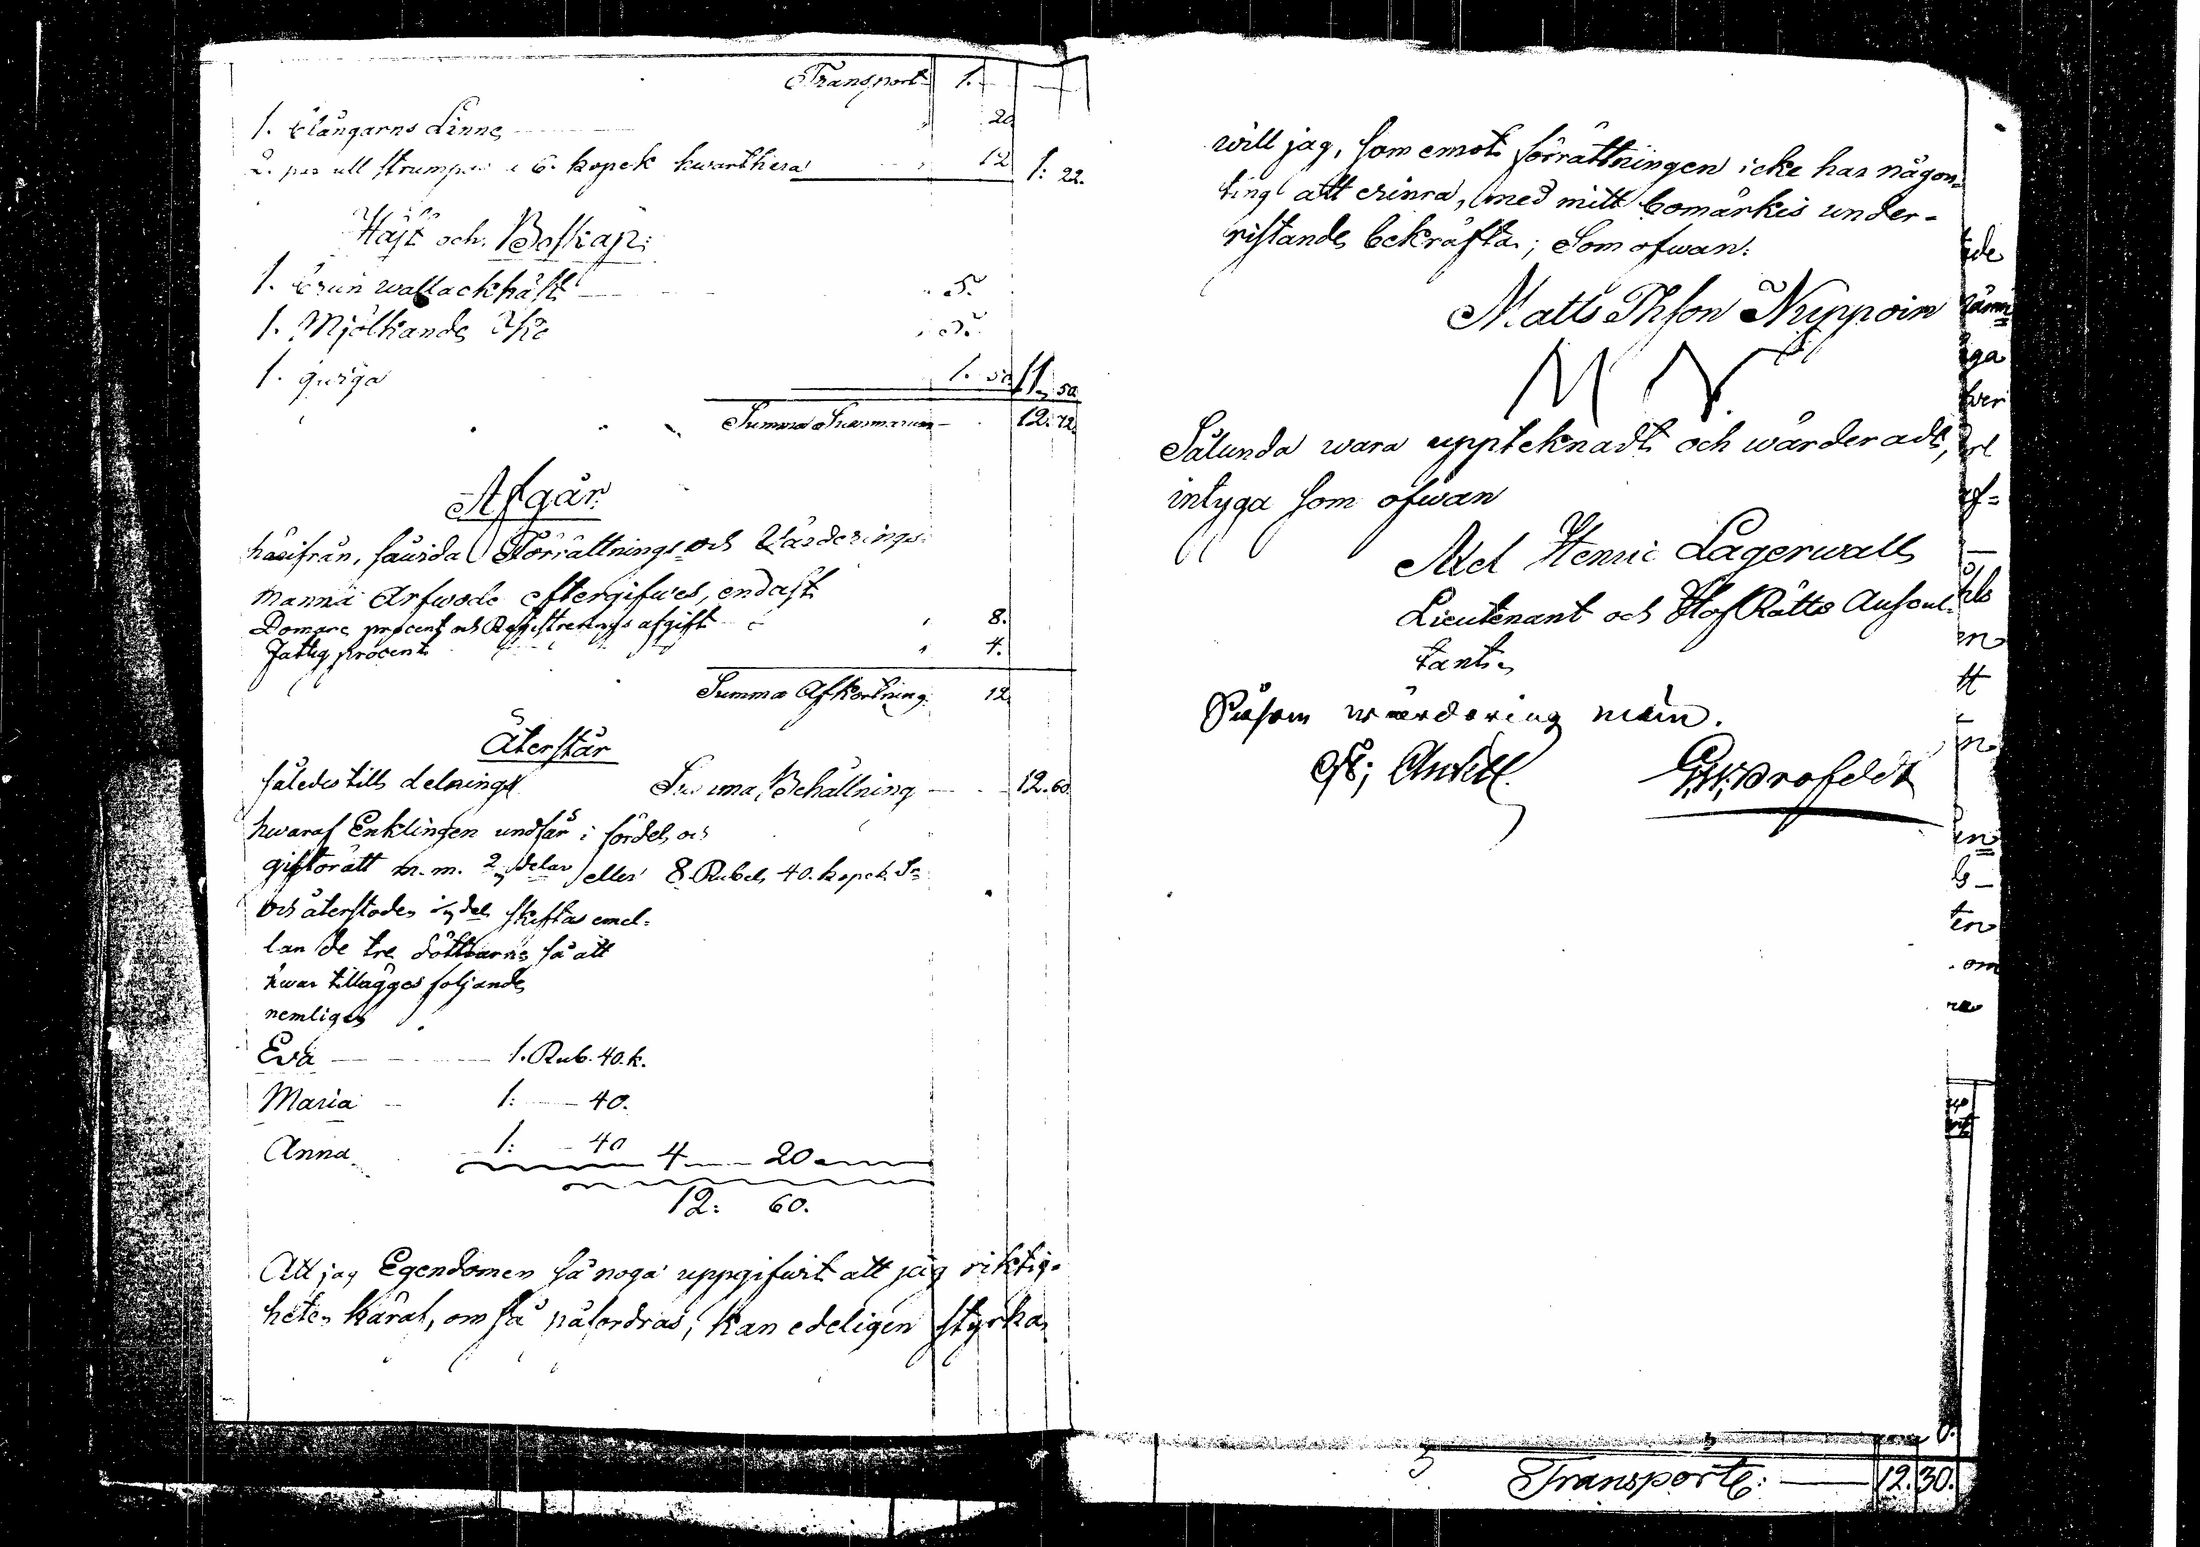 Transport 1. —
1. blångarns Linne 20
2. par ull strumpor à 6. kopek kwarthera 12 1: 22.
Häst och Boskap:
1. brun wallackhäst 5.
1. Mjölkande Ko 5.
1. quiga 1. 50 11, 50
Summa Summarum 12. 72.
Afgår
härifrån, sawida Förrättnings- och Värderings-
manna Arfwode eftergifwes, endast
Domare procent och Registrerings afgift 8.
Fattig procent 4.
Summa Afkortning 12
Återstår
således till delning Summa Behållning 12. 60.
hwaraf Enklingen undfår i fördel och
giftorätt m. m. 2/3 delar eller 8 Rubel 40. kopek Sr
och återstoden 1/3 del skiftas emel-
lan de tre döttrarne så att
hwar tillägges följande
nemligen
Eva 1. Rub. 40. k.
Maria 1: 40.
Anna 1: 40 4 20
12: 60.
Att jag Egendomen så noga uppgifwit att jag riktig-
heten häraf, om så påfordras, kan edeligen styrka,
will jag, som emot förrättningen icke har någon-
ting att erinra, med mitt bomärkes under-
ristande bekräfta; Som ofwan:
Matts Thson Nuppoin
M N
Sålunda wara uppteknadt och wärderadt,
intyga som ofwan
Axel Henric Lagerwall
Lieutenant och HofRätts Auscul-
tant.
Såsom wärdering män.
G. W. Brofeldt
Transport: 12. 30.